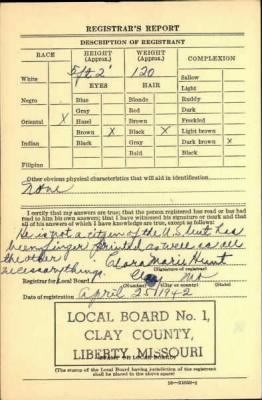 REGISTRAR'S REPORT
DESCRIPTION OF REGISTRANT
RACE HEIGHT (Approx.) WEIGHT (Approx.) COMPLEXION
5 ft 2" 120
White Sallow
EYES HAIR Light
Negro Blue Blonde Ruddy
Gray Red Dark
Oriental X Hazel Brown Freckled
Brown X Black X Light brown X
Indian Black Gray Dark brown
Bald Black
Filipino
Other obvious physical characteristics that will aid in identification
None
I certify that my answers are true; that the person registered has read or has had read to him his own answers; that I have witnessed his signature or mark and that all of his answers of which I have knowledge are true, except as follows:
He is not a citizen of the U.S. but has
been finger printed as well as all
the other
necessary things.
Clara Marie Hunt
(Signature of registrar)
Registrar for Local Board Clay Mo
(Number) (City or county) (State)
Date of registration April 25 1942
LOCAL BOARD No. 1,
CLAY COUNTY,
LIBERTY, MISSOURI
(STAMP OF LOCAL BOARD)
(The stamp of the Local Board having jurisdiction of the registrant shall be placed in the above space)